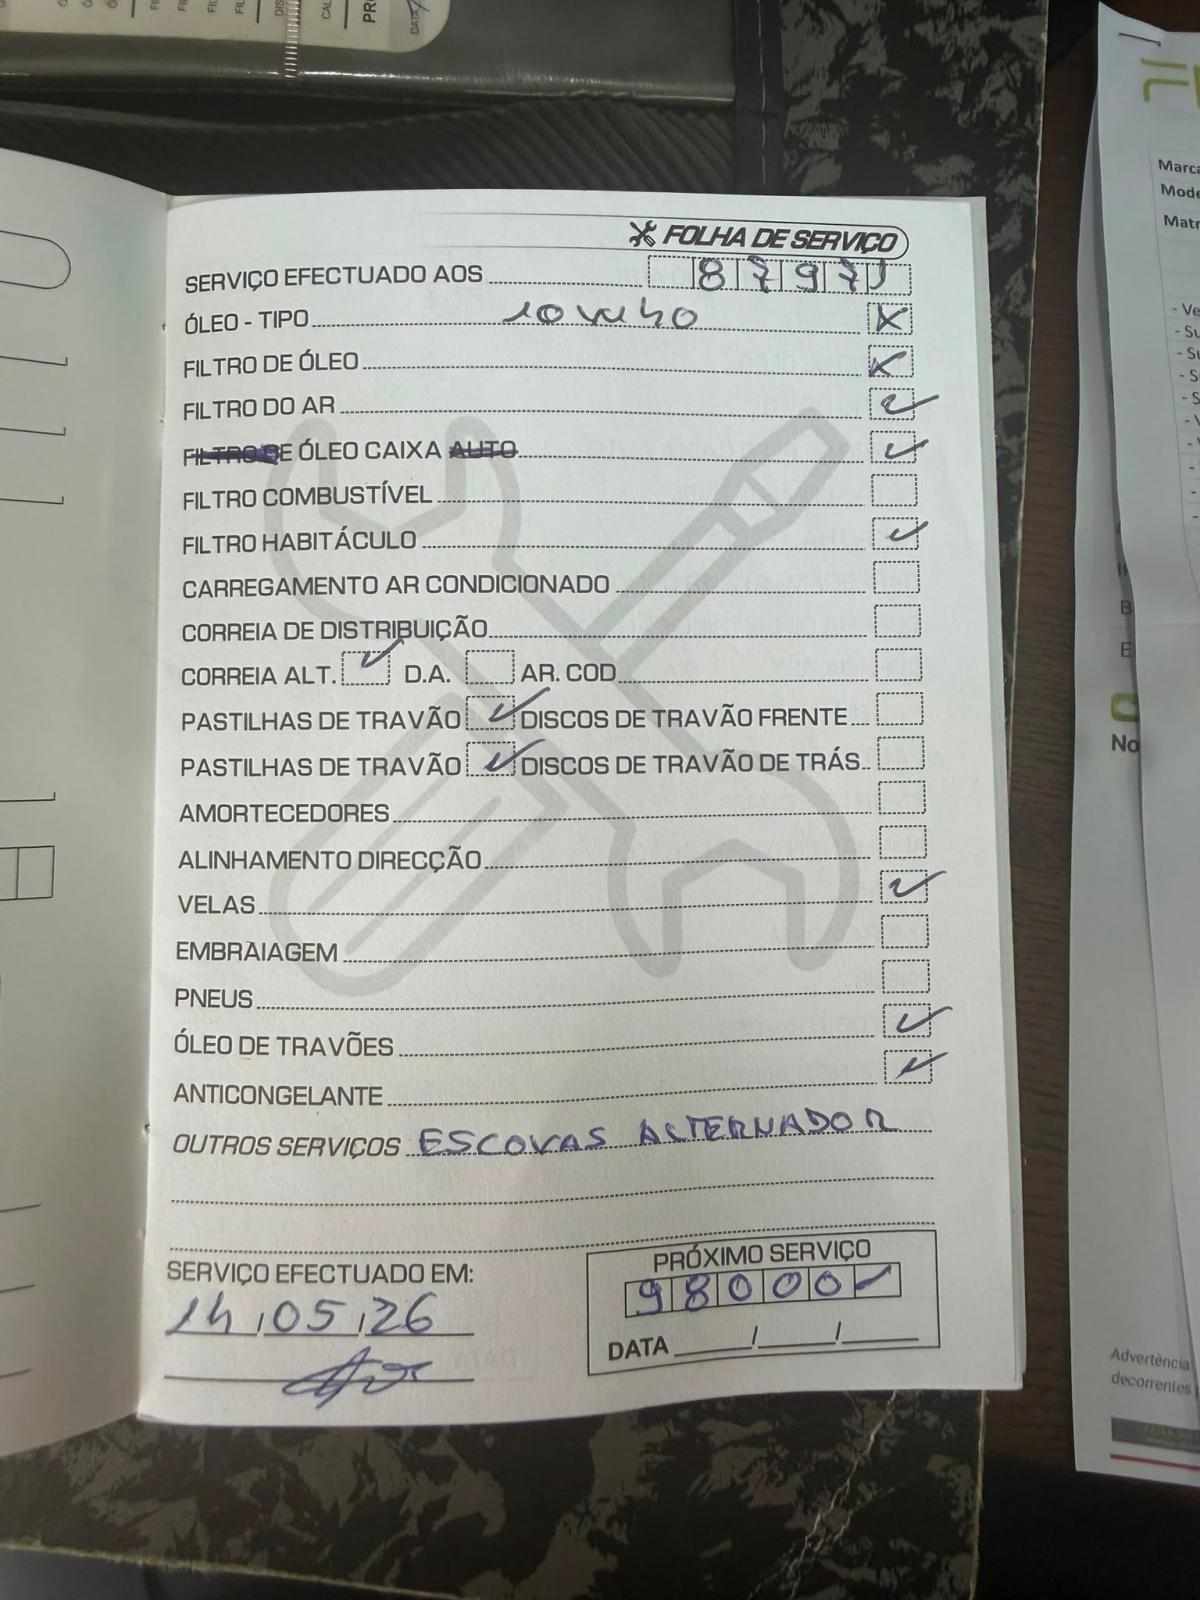 FOLHA DE SERVIÇO
SERVIÇO EFECTUADO AOS 8 7 9 7 1
ÓLEO - TIPO 10W40
FILTRO DE ÓLEO
FILTRO DO AR
FILTRO DE ÓLEO CAIXA AUTO
FILTRO COMBUSTÍVEL
FILTRO HABITÁCULO
CARREGAMENTO AR CONDICIONADO
CORREIA DE DISTRIBUIÇÃO
CORREIA ALT. D.A. AR. COD
PASTILHAS DE TRAVÃO DISCOS DE TRAVÃO FRENTE
PASTILHAS DE TRAVÃO DISCOS DE TRAVÃO DE TRÁS
AMORTECEDORES
ALINHAMENTO DIRECÇÃO
VELAS
EMBRAIAGEM
PNEUS
ÓLEO DE TRAVÕES
ANTICONGELANTE
OUTROS SERVIÇOS ESCOVAS ALTERNADOR
SERVIÇO EFECTUADO EM:
14/05/26
PRÓXIMO SERVIÇO
98000
DATA / /
Marca
Matr
No
Advertência
decorrentes